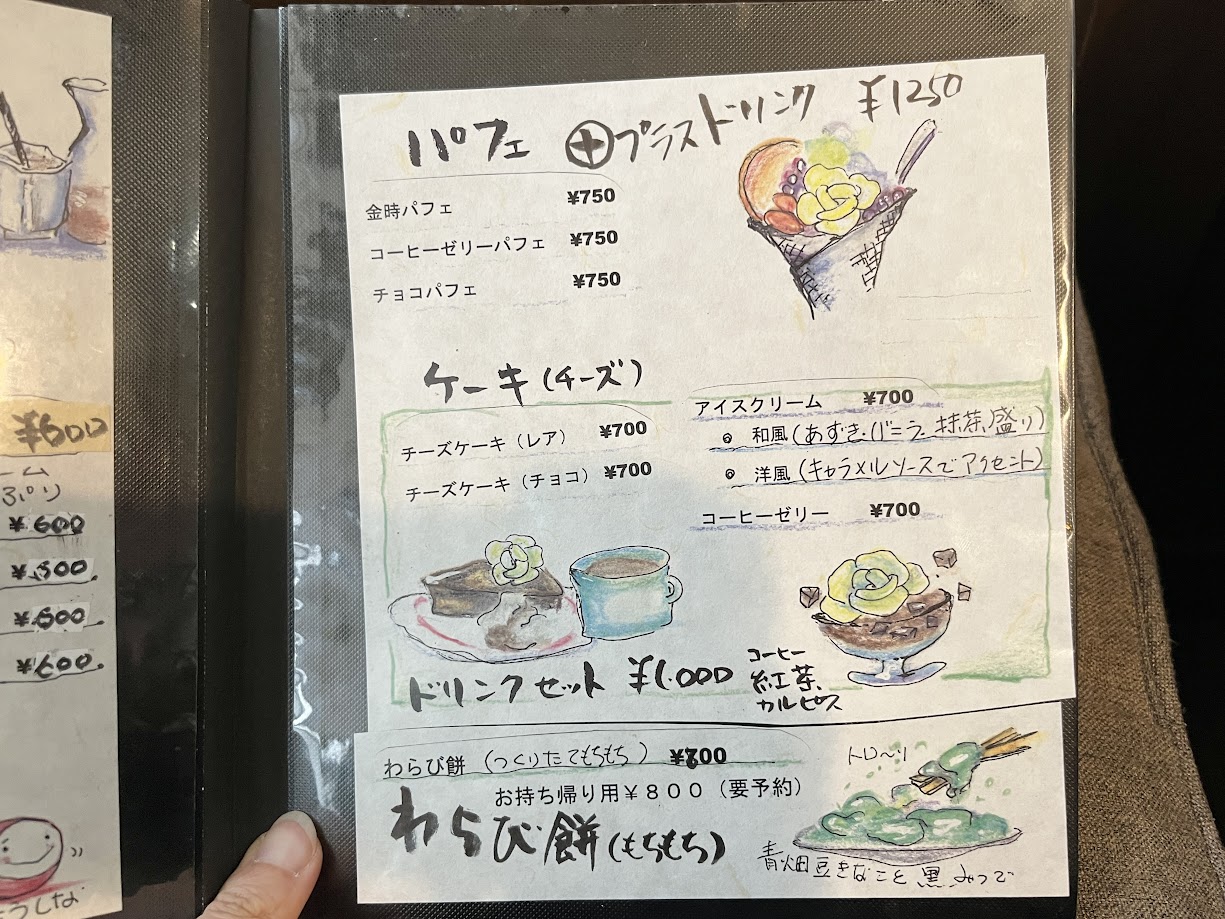 パフェ ⊕プラスドリンク ¥1250
金時パフェ ¥750
コーヒーゼリーパフェ ¥750
チョコパフェ ¥750
ケーキ(チーズ)
チーズケーキ（レア） ¥700
チーズケーキ（チョコ） ¥700
アイスクリーム ¥700
◎ 和風(あずき・バニラ・抹茶盛り)
◎ 洋風(キャラメルソースでアクセント)
コーヒーゼリー ¥700
ドリンクセット ¥1,000
コーヒー
紅茶、
カルピス
わらび餅 (つくりたてもちもち)
お持ち帰り用￥８００（要予約）
わらび餅(もちもち)
トロ〜リ
青畑豆きなこと黒みつで
¥600
ーム
ぷり)
¥600
¥500
¥600
うしな